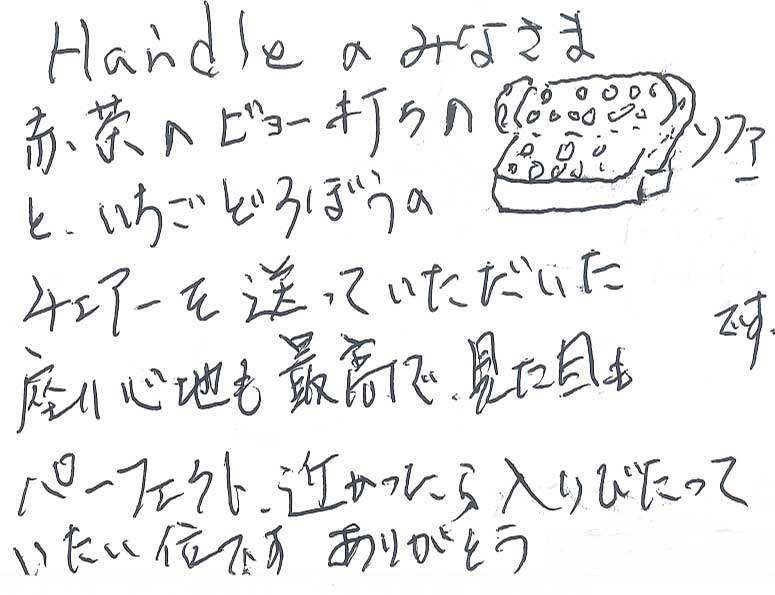 Handleのみなさま
赤茶のビョー打ちの
ソファー
と、いちごどろぼうの
チェアーを送っていただいた
です.
座り心地も最高で、見た目も
パーフェクト、近かったら入りびたって
いたい位です ありがとう